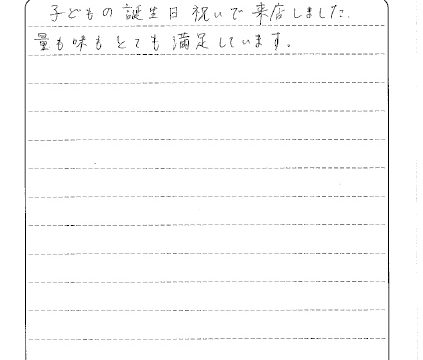 子どもの誕生日祝いで来店しました.
量も味もとても満足しています。